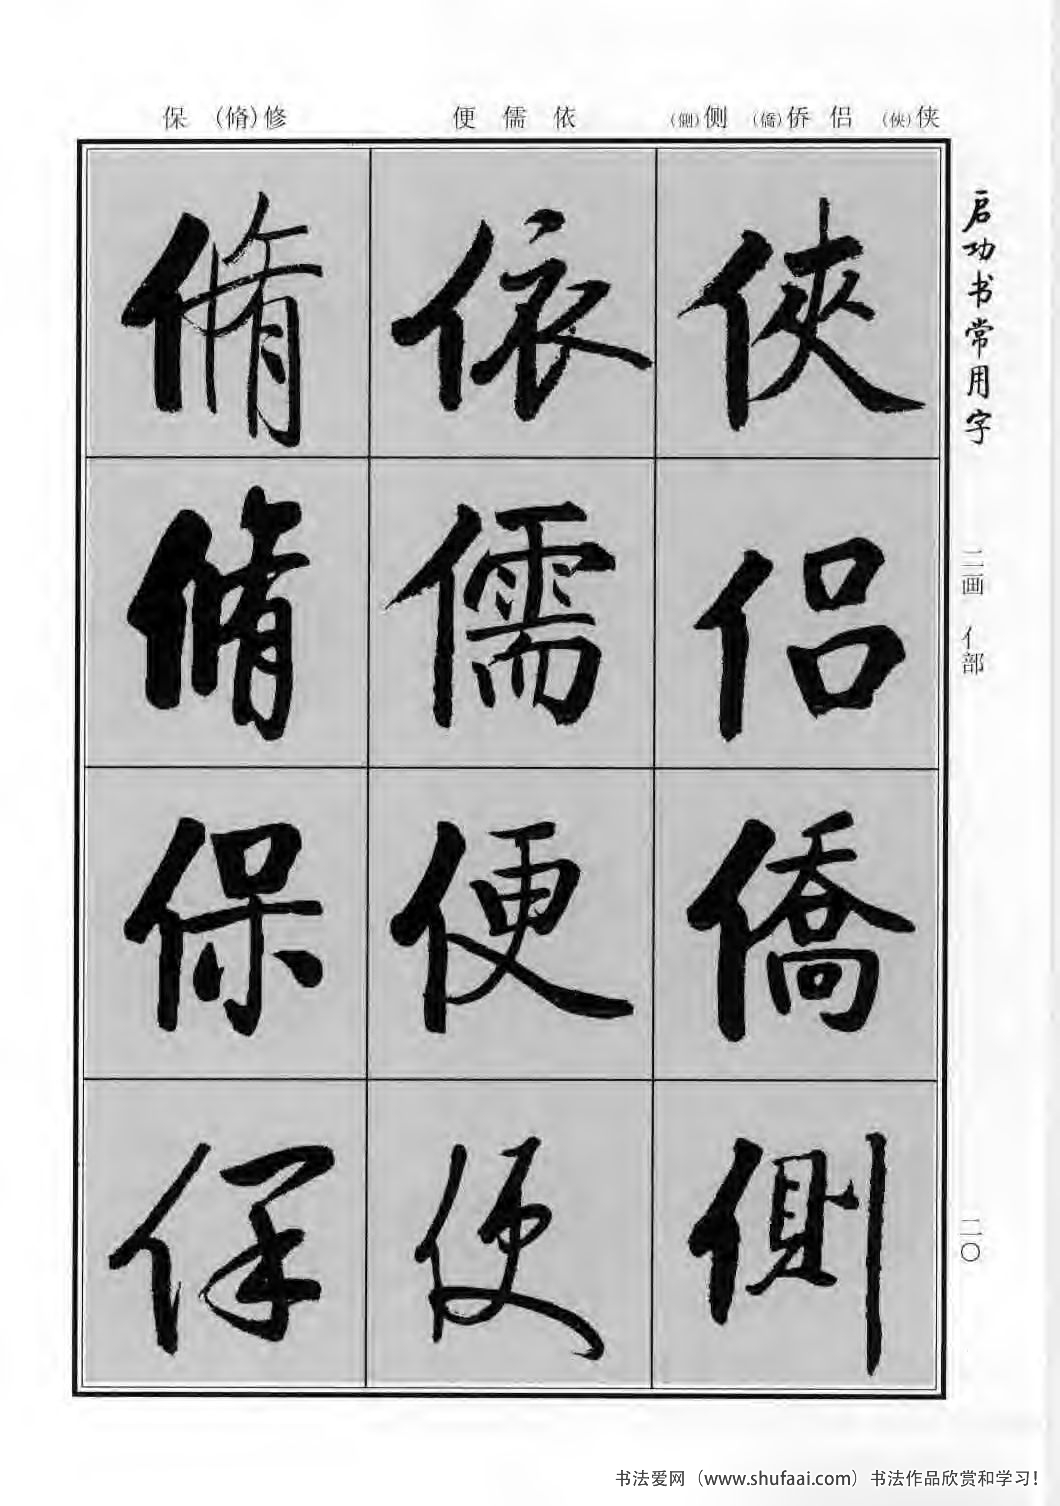 保 (脩)修 便 儒 依 (側)侧 (僑)侨 侣 (俠)侠
启功书常用字
二画 亻部
二〇
俠
侣
僑
側
依
儒
便
便
脩
脩
保
保
书法爱网（www.shufaai.com）书法作品欣赏和学习！